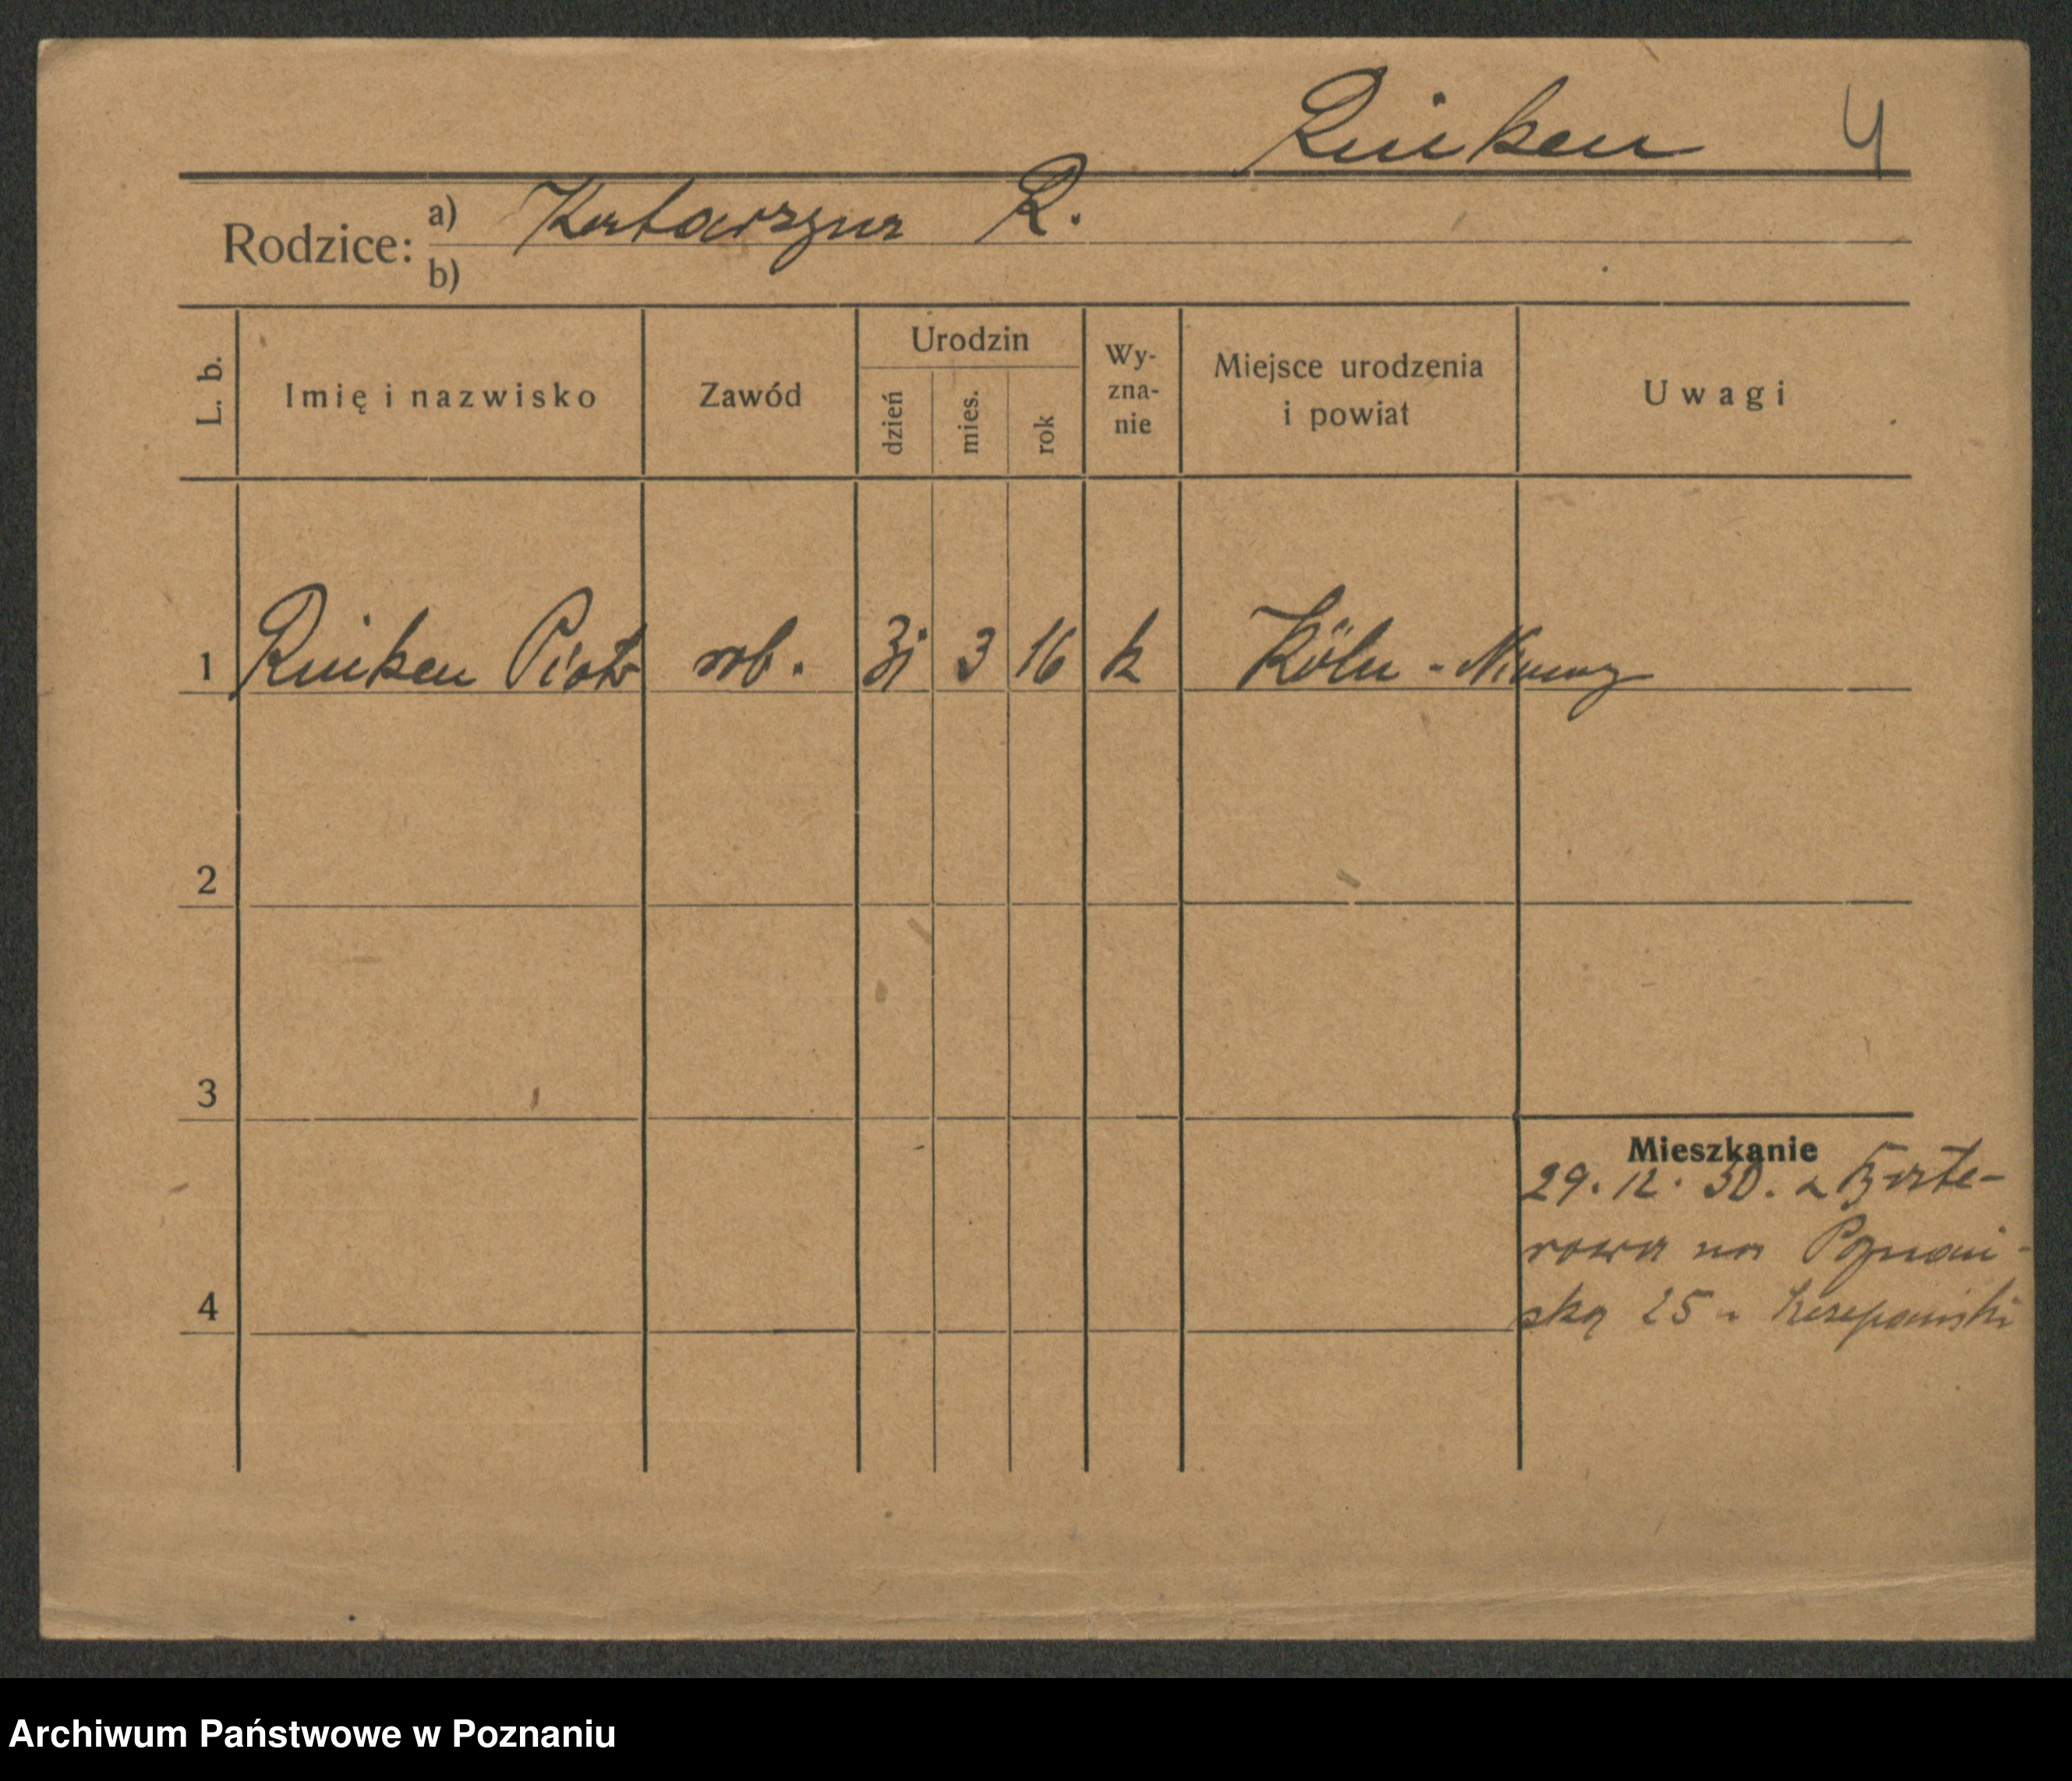 Rniken 4
Rodzice: a) Katarzyna R.
b)
L. b. Imię i nazwisko Zawód Urodzin dzień mies. rok Wy-zna-nie Miejsce urodzenia i powiat Uwagi
1 Rniken Piotr rob. 31 3 16 k Köln - Niemcy
2
3
Mieszkanie
29. 12. 30. z
rowa na Poznań-
4 ską 25 -
Archiwum Państwowe w Poznaniu